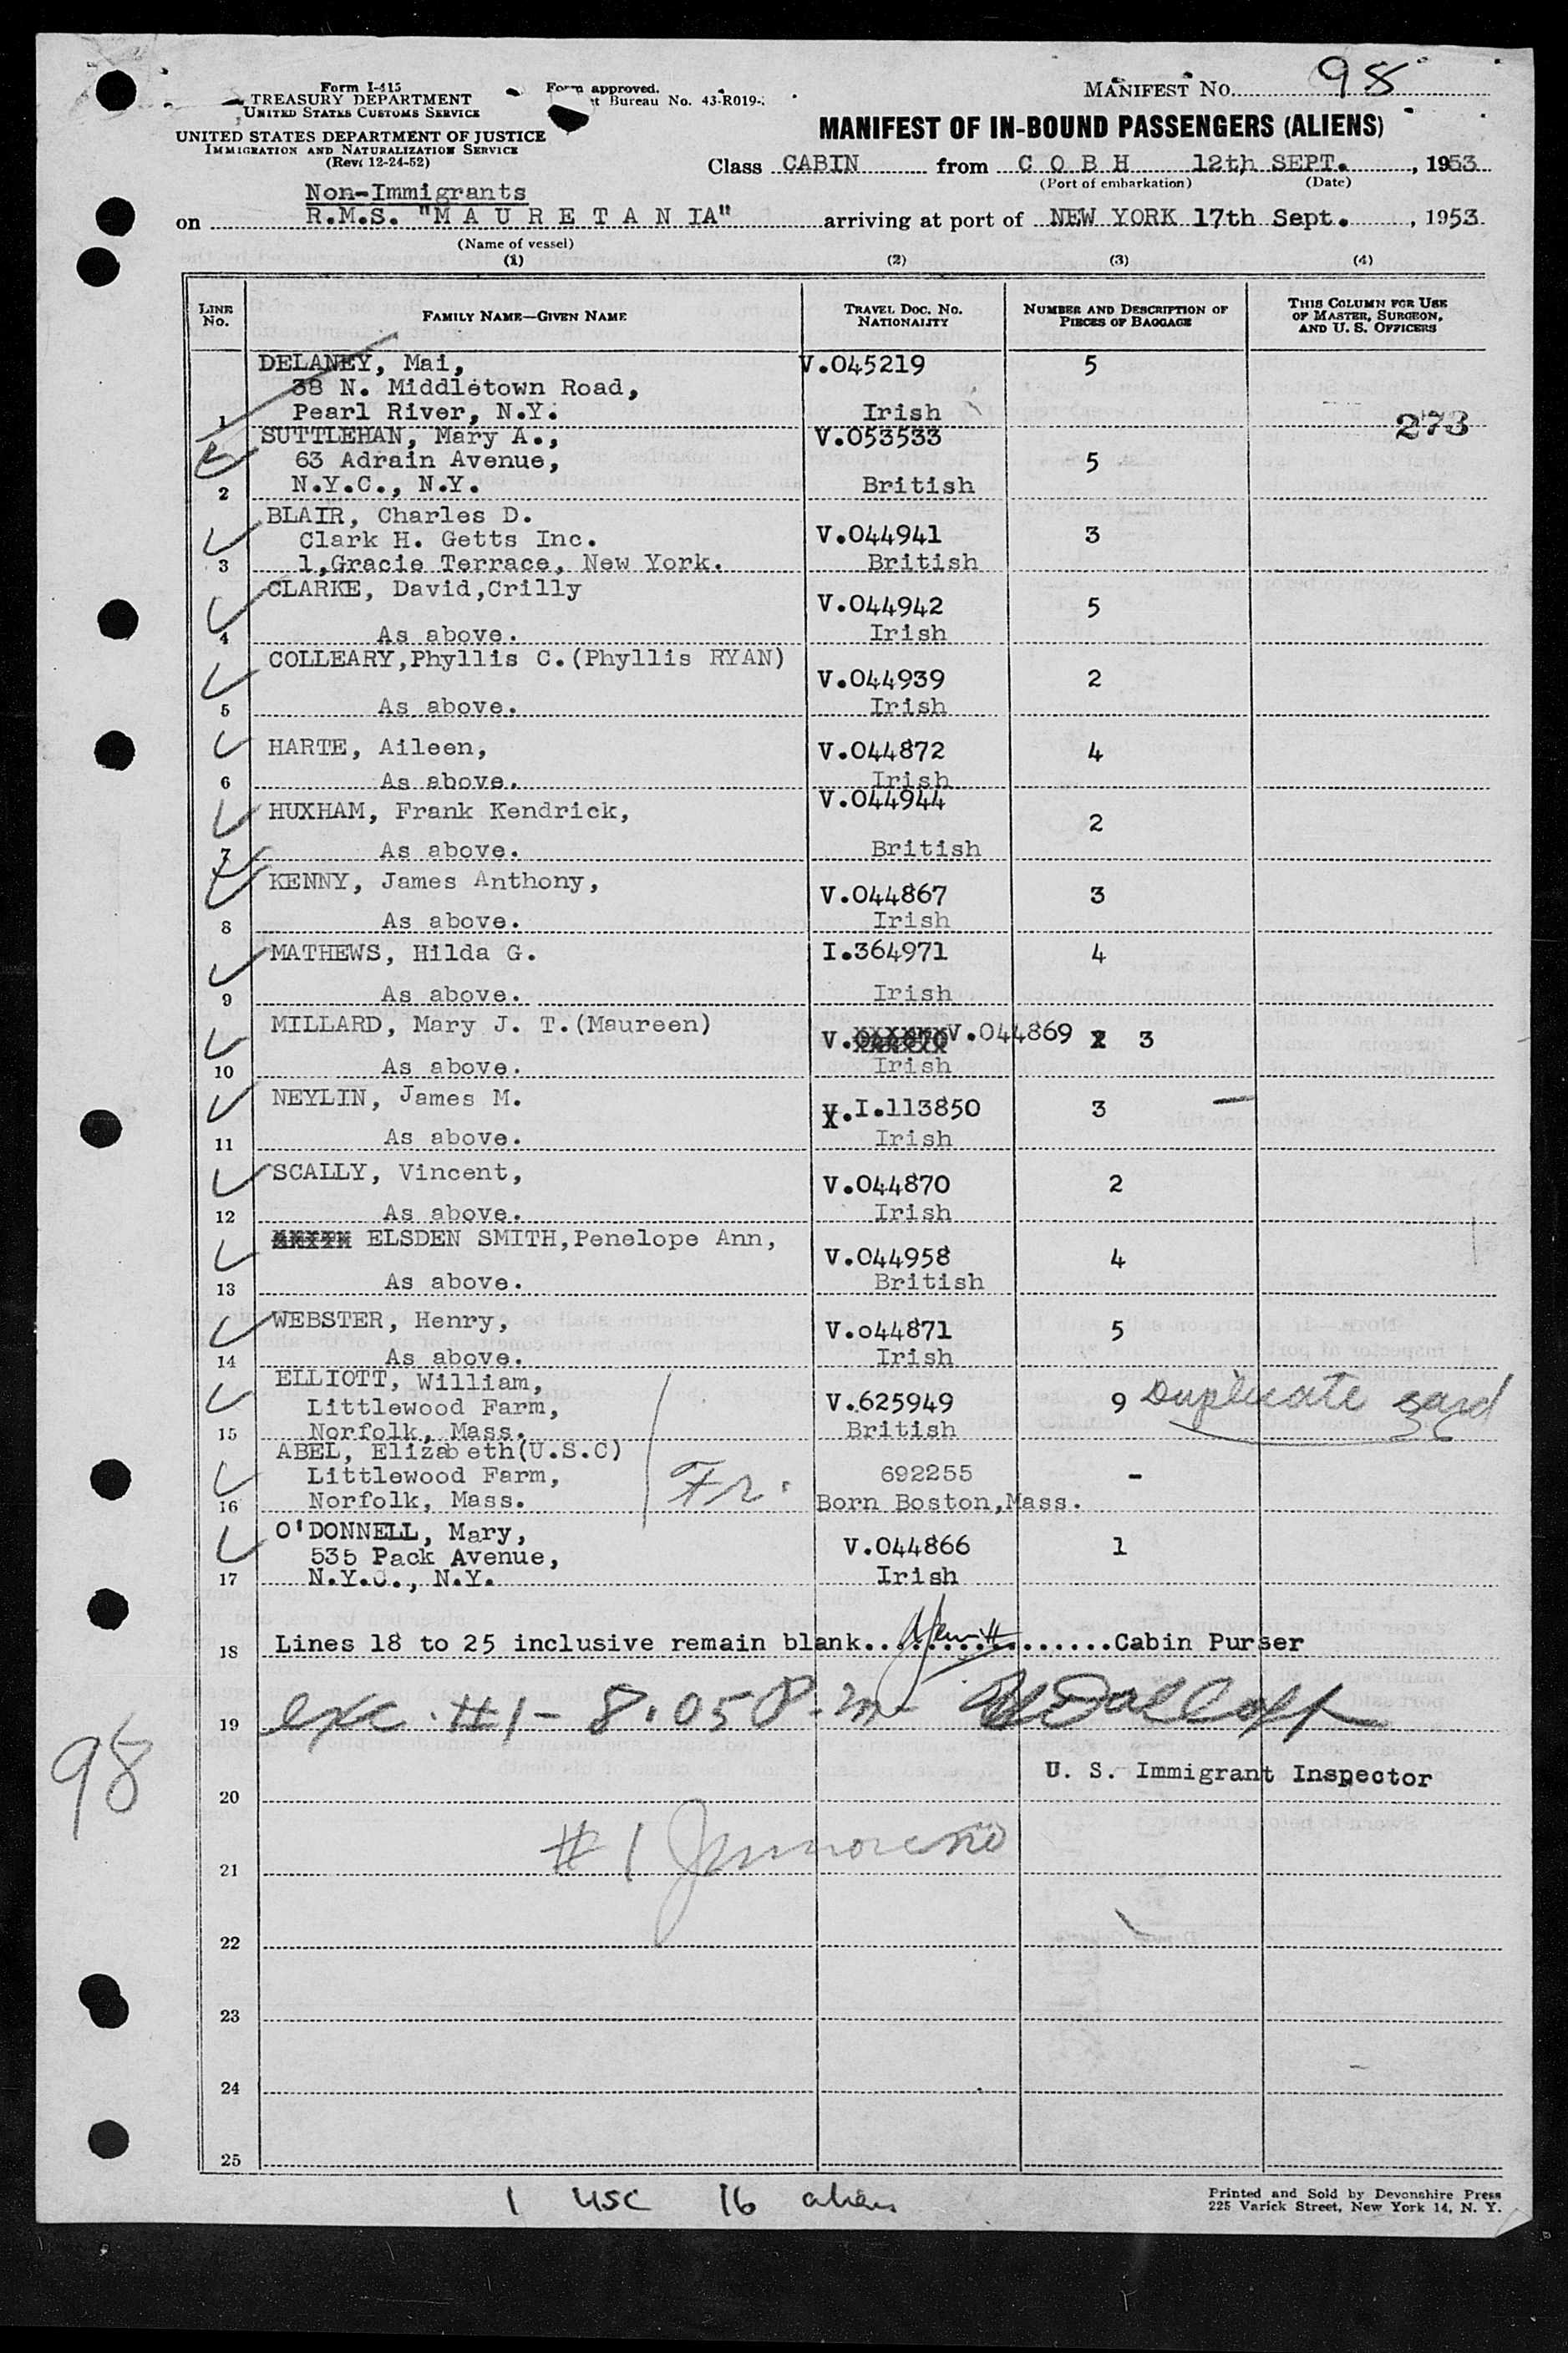 Form I-415
TREASURY DEPARTMENT
UNITED STATES CUSTOMS SERVICE
UNITED STATES DEPARTMENT OF JUSTICE
IMMIGRATION AND NATURALIZATION SERVICE
(Rev. 12-24-52)
Form approved.
Bureau No. 43-R019-
MANIFEST NO. 98
MANIFEST OF IN-BOUND PASSENGERS (ALIENS)
Class CABIN from C O B H 12th SEPT., 1953
(Port of embarkation) (Date)
Non-Immigrants
on R.M.S. "M A U R E T A N IA" arriving at port of NEW YORK 17th Sept., 1953
(Name of vessel)
(1) (2) (3) (4)
LINE No. FAMILY NAME—GIVEN NAME TRAVEL DOC. NO. NATIONALITY NUMBER AND DESCRIPTION OF PIECES OF BAGGAGE THIS COLUMN FOR USE OF MASTER, SURGEON, AND U. S. OFFICERS
DELANEY, Mai, V.045219 5
38 N. Middletown Road,
1 Pearl River, N.Y. Irish 273
SUTTLEHAN, Mary A., V.053533
63 Adrain Avenue, 5
2 N.Y.C., N.Y. British
BLAIR, Charles D.
Clark H. Getts Inc. V.044941 3
3 1,Gracie Terrace, New York. British
CLARKE, David,Crilly
V.044942 5
4 As above. Irish
COLLEARY,Phyllis C.(Phyllis RYAN)
V.044939 2
5 As above. Irish
HARTE, Aileen, V.044872 4
6 As above. Irish
HUXHAM, Frank Kendrick, V.044944
2
7 As above. British
KENNY, James Anthony, V.044867 3
8 As above. Irish
MATHEWS, Hilda G. I.364971 4
9 As above. Irish
MILLARD, Mary J. T.(Maureen) V. V.044869 3
10 As above. Irish
NEYLIN, James M. .I.113850 3
11 As above. Irish
SCALLY, Vincent, V.044870 2
12 As above. Irish
ELSDEN SMITH,Penelope Ann, V.044958 4
13 As above. British
WEBSTER, Henry, V.o44871 5
14 As above. Irish
ELLIOTT, William,
Littlewood Farm, V.625949 9 Duplicate card
15 Norfolk, Mass. British
ABEL, Elizabeth(U.S.C)
Littlewood Farm, Fr. 692255 -
16 Norfolk, Mass. Born Boston,Mass.
O'DONNELL, Mary,
535 Pack Avenue, V.044866 1
17 N.Y.C., N.Y. Irish
18 Lines 18 to 25 inclusive remain blank. Cabin Purser
19 exc. #1 - 8.05 P.m
98
U. S. Immigrant Inspector
20
#1
21
22
23
24
25
1 USC 16 aliens
Printed and Sold by Devonshire Press
225 Varick Street, New York 14, N. Y.